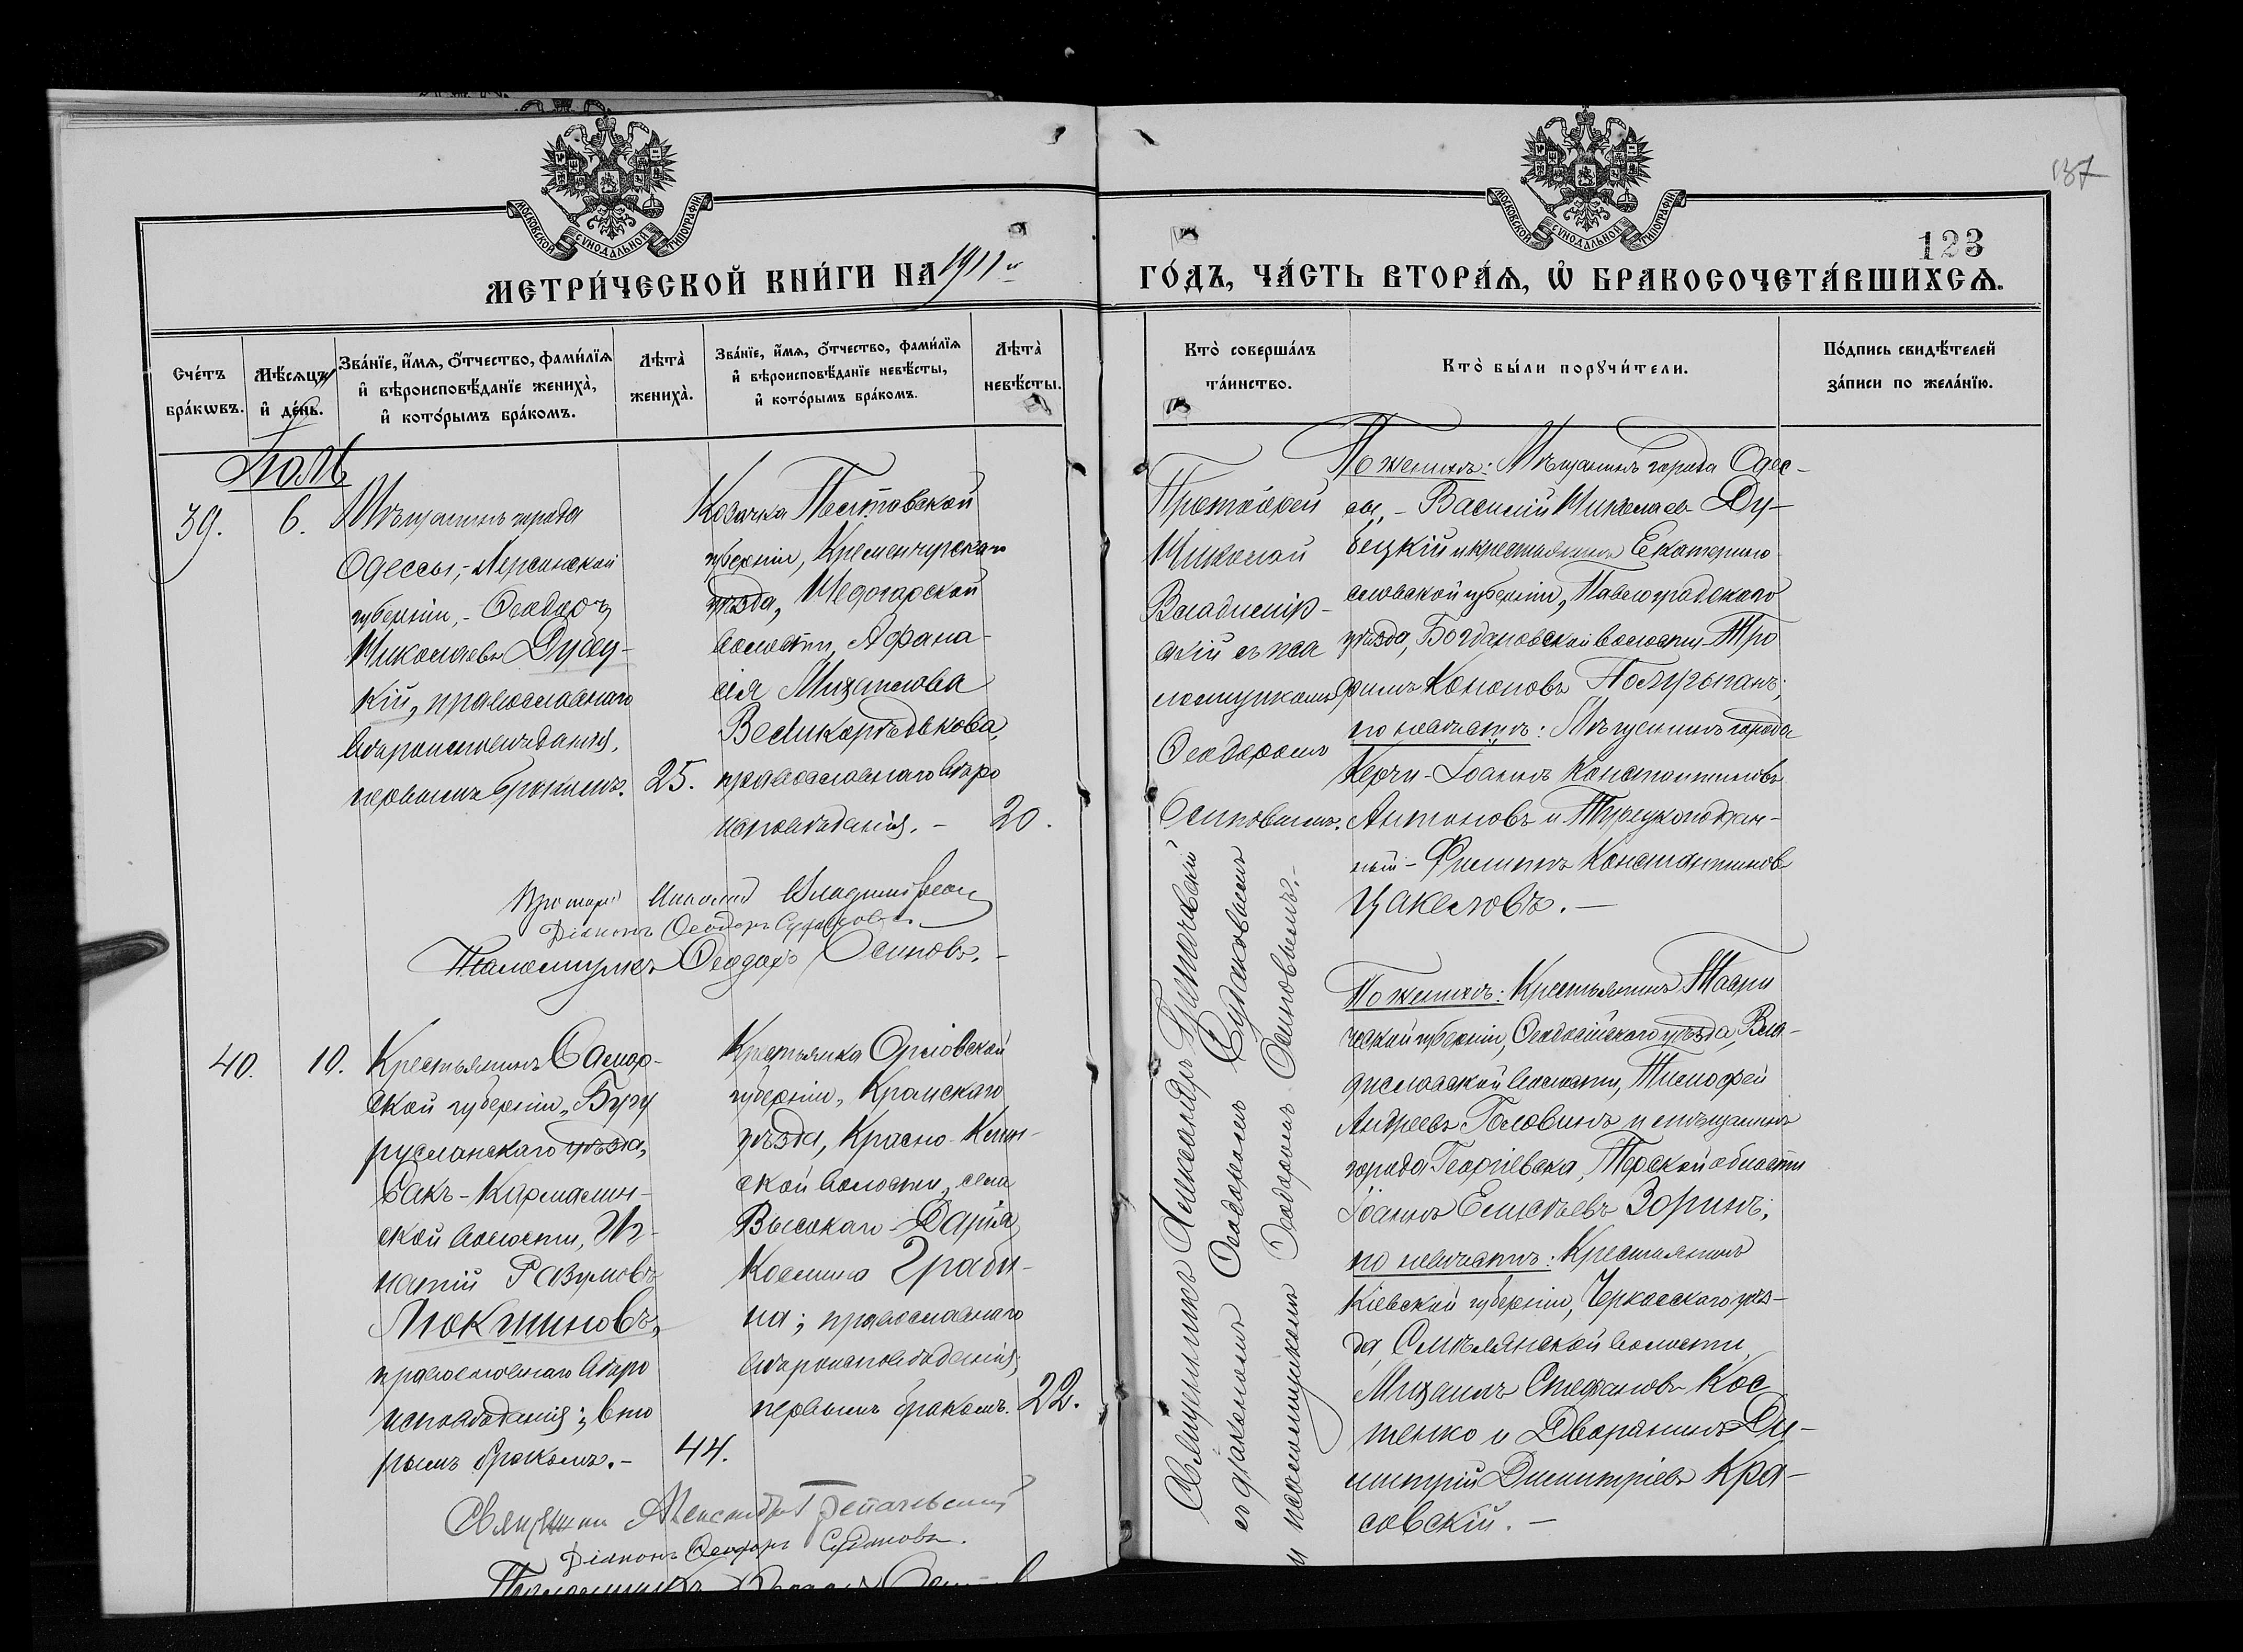 137
123
МОСКОВСКОЙ СѴНОДАЛЬНОЙ ТИПОГРАФІИ.
МОСКОВСКОЙ СѴНОДАЛЬНОЙ ТИПОГРАФІИ.
МЕТРИ́ЧЕСКОЙ КНИ́ГИ НА 1911 й
ГО́ДЪ, ЧА́СТЬ ВТОРА́Ѧ, Ѽ БРАКОСОЧЕТА́ВШИХСѦ.
Сче́тъ
бра́кѡвъ.
Мѣ́сяцъ
и҆ де́нь.
Зва́нїе, и҆́мѧ, о҆́тчество, фами́лїѧ
и҆ вѣроисповѣ́данїе жениха̀,
и҆ кото́рымъ бра́комъ.
Лѣта̀
жениха̀.
Зва́нїе, и҆́мѧ, о҆́тчество, фами́лїѧ
и҆ вѣроисповѣ́данїе невѣ́сты,
и҆ кото́рымъ бра́комъ.
Лѣта̀
невѣ́сты.
Кто̀ соверша́лъ
та́инство.
Кто̀ бы́ли порꙋчи́тели.
По́дпись свидѣ́телей
за́писи по жела́нїю.
Іюль
39.
6.
Мѣщанинъ города
Одессы,- Херсонской
губерніи,- Ѳеодоръ
Николаевъ Дубец-
кій, православнаго
вѣроисповѣданія,
первымъ бракомъ.
25.
Козачка Полтавской
губерніи, Кременчугскаго
уѣзда,
волости, Афана-
сія Михайлова
Великоредькова,
православнаго вѣро
исповѣданія. -
20.
Протоіерей
Николай
Владимір-
скій съ пса
ломщикомъ
Ѳеодоромъ
Осиповымъ.
По женихѣ: Мѣщанинъ города Одес-
сы, - Василій Николаевъ Ду-
бецкій и крестьянинъ Екатерино-
славской губерніи, Павлоградскаго
уѣзда, Богдановской волости Тро
фимъ Кононовъ
по невѣстѣ: Мѣщанинъ города
Керчи - Іоаннъ Константиновъ
Антоновъ и Турецкоподдан-
ный - Филиппъ Константиновъ
Цакеловъ. -
Протоіерей Николай Владимірскій
Діаконъ Ѳеодоръ Судаковъ
Псаломщикъ Ѳеодоръ Осиповъ. -
40.
10.
Крестьянинъ Самар-
ской губерніи, Бугу
русланскаго уѣзда,
Сакъ-Кармалин-
ской волости, Иг-
натій Разумовъ
Люкшиновъ,
православнаго вѣро
исповѣданія; вто
рымъ бракомъ. -
44.
Крестьянка Орловской
губерніи, Кромскаго
уѣзда,
ской волости, села
Высокаго Дарія
Космина Граби-
на; православнаго
вѣроисповѣданія;
первымъ бракомъ.
22.
Священникъ Александръ
съ діакономъ Ѳеодоромъ Судаковымъ
и псаломщикомъ Ѳеодоромъ Осиповымъ. -
По женихѣ: Крестьянинъ Таври
ческой губерніи, Ѳеодосійскаго уѣзда, Вла-
диславской волости, Тимофей
Андреевъ Головинъ и мѣщанинъ
города Георгіевска, Терской области
Іоаннъ Елисеевъ Зоринъ;
по невѣстѣ: Крестьянинъ
Кіевской губерніи, Черкасскаго уѣз-
да, Смѣлянской волости,
Михаилъ Стефановъ Кос
тенко и Дворянинъ Ди-
митрій Димитріевъ Кра-
совскій. -
Священникъ Александръ
Діаконъ Ѳеодоръ Судаковъ.